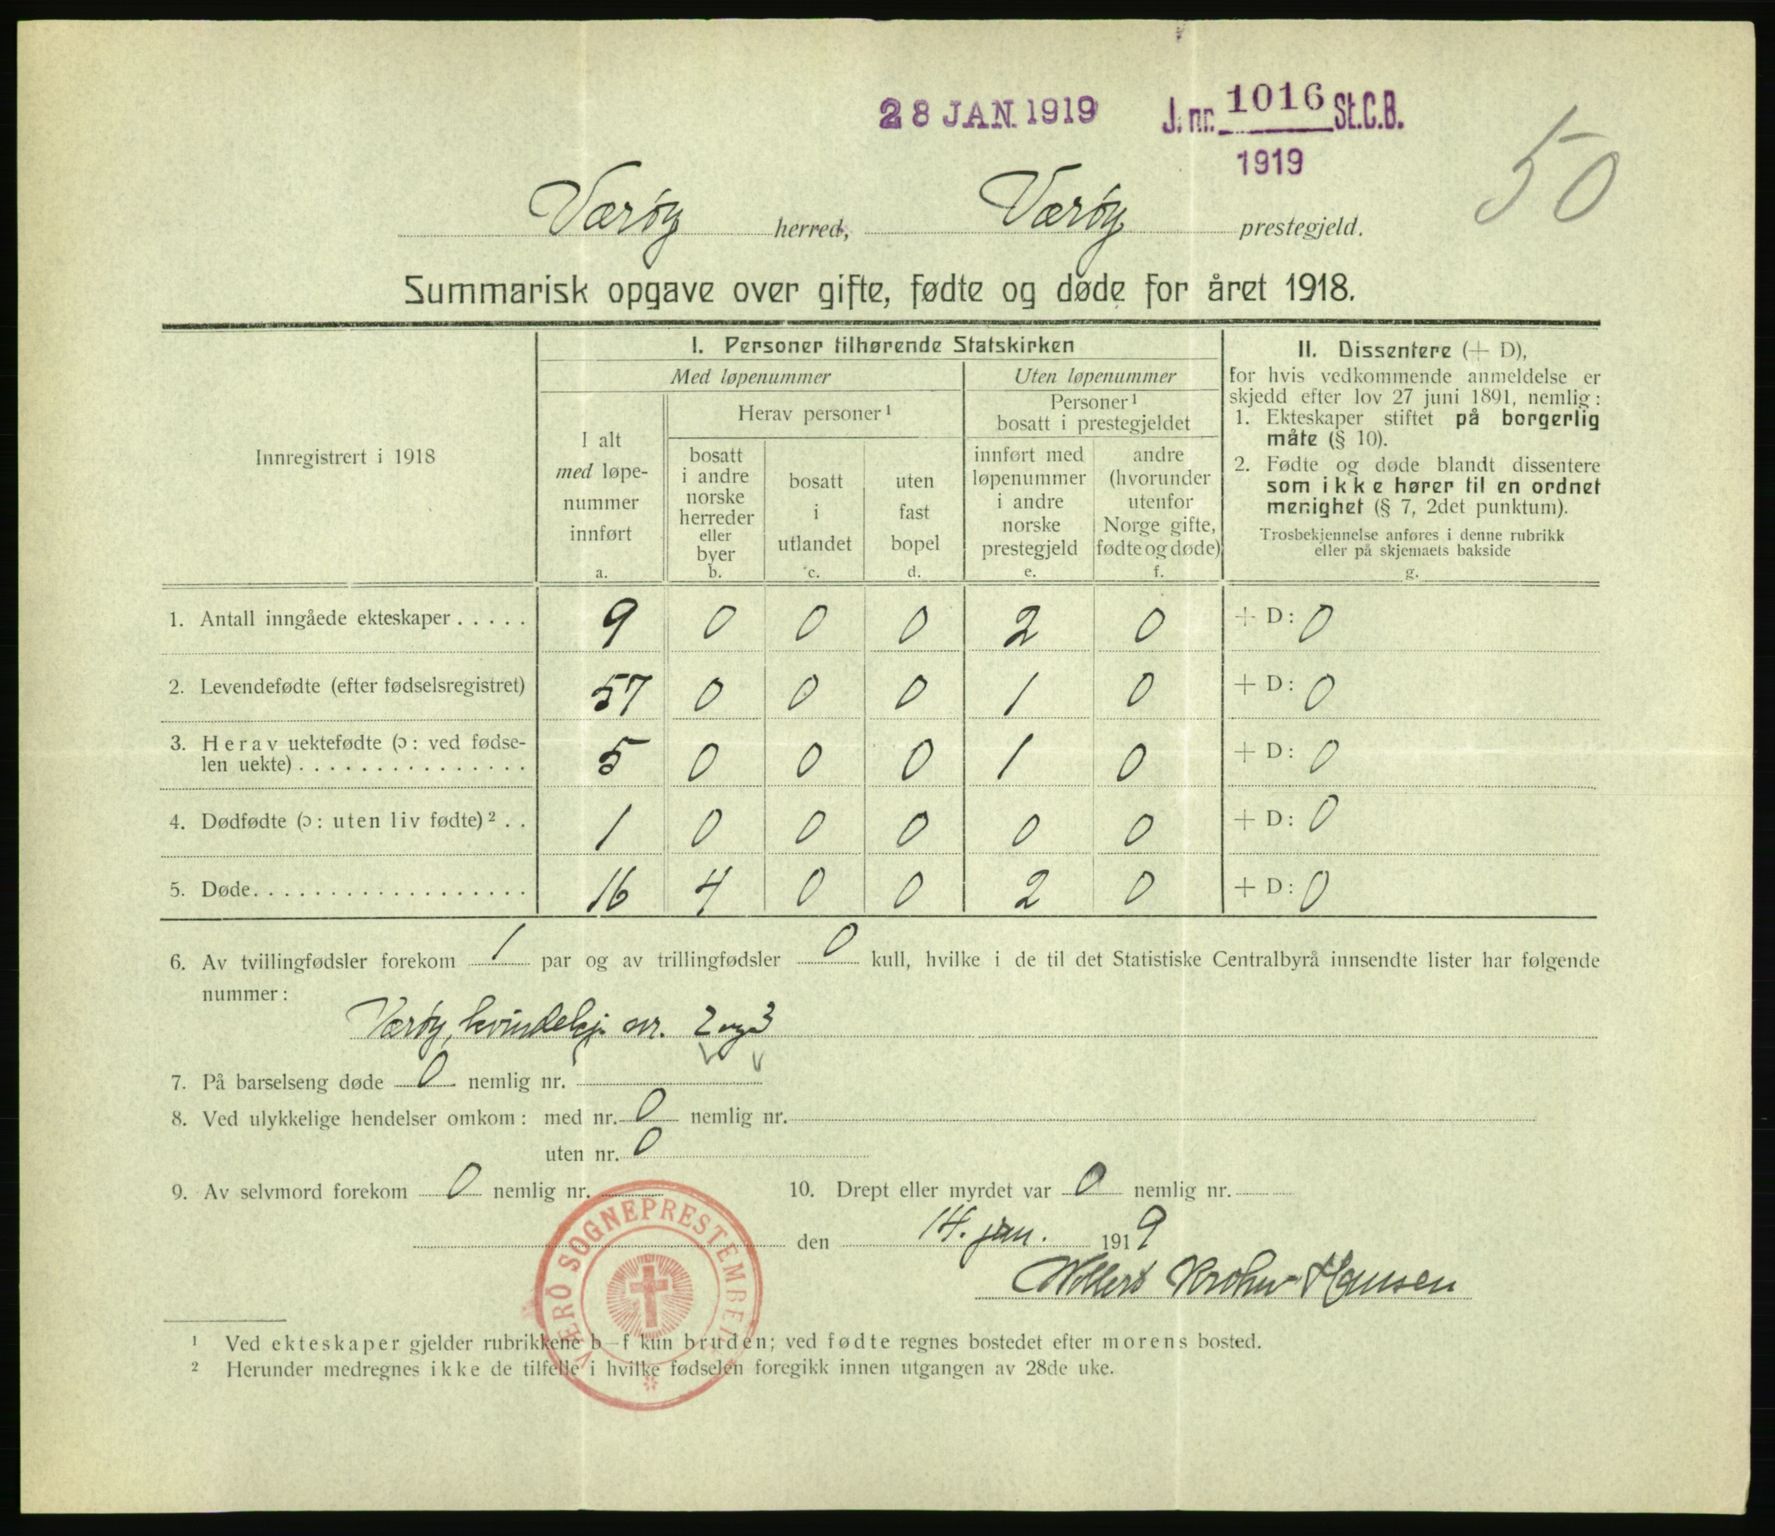 28 JAN 1919 J. nr. 1016 St.C.B.
1919
50
Værøy herred, Værøy prestegjeld.
Summarisk opgave over gifte, fødte og døde for året 1918.
Innregistrert i 1918
I. Personer tilhørende Statskirken
Med løpenummer
Uten løpenummer
I alt
med løpe-
nummer
innført
a.
Herav personer ¹
bosatt
i andre
norske
herreder
eller
byer
b.
bosatt
i
utlandet
c.
uten
fast
bopel
d.
Personer ¹
bosatt i prestegjeldet
innført med
løpenummer
i andre
norske
prestegjeld
e.
andre
(hvorunder
utenfor
Norge gifte,
fødte og døde)
f.
II. Dissentere (+ D),
for hvis vedkommende anmeldelse er
skjedd efter lov 27 juni 1891, nemlig:
1. Ekteskaper stiftet på borgerlig
måte (§ 10).
2. Fødte og døde blandt dissentere
som ikke hører til en ordnet
menighet (§ 7, 2det punktum).
Trosbekjennelse anføres i denne rubrikk
eller på skjemaets bakside
g.
1. Antall inngåede ekteskaper ..... 9 0 0 0 2 0 + D: 0
2. Levendefødte (efter fødselsregistret) 57 0 0 0 1 0 + D: 0
3. Herav uektefødte (ɔ: ved fødse-
len uekte) ............... 5 0 0 0 1 0 + D: 0
4. Dødfødte (ɔ: uten liv fødte) ² .. 1 0 0 0 0 0 + D: 0
5. Døde .................. 16 4 0 0 2 0 + D: 0
6. Av tvillingfødsler forekom 1 par og av trillingfødsler 0 kull, hvilke i de til det Statistiske Centralbyrå innsendte lister har følgende
nummer:
Værøy, kvindekj. nr. 2 og 3
7. På barselseng døde 0 nemlig nr.
8. Ved ulykkelige hendelser omkom: med nr. 0 nemlig nr.
uten nr. 0
9. Av selvmord forekom 0 nemlig nr.
10. Drept eller myrdet var 0 nemlig nr.
den 14. jan. 1919
Krohn-Hansen
VÆRØ SOGNEPRESTEMBED
¹ Ved ekteskaper gjelder rubrikkene b-f kun bruden; ved fødte regnes bostedet efter morens bosted.
² Herunder medregnes ikke de tilfelle i hvilke fødselen foregikk innen utgangen av 28de uke.